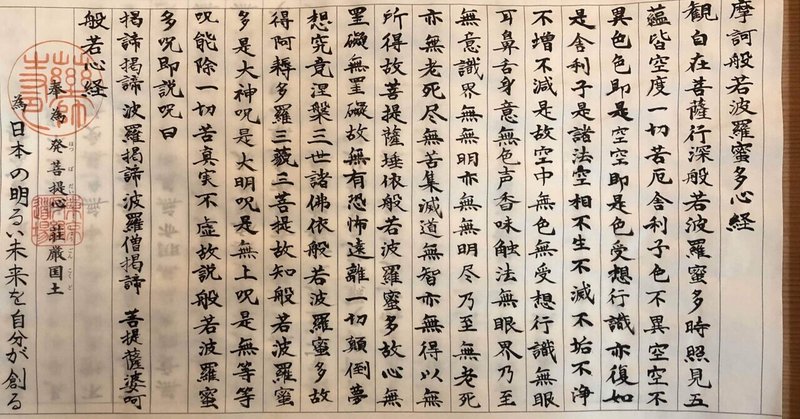 摩訶般若波羅蜜多心経
観自在菩薩行深般若波羅蜜多時照見五
蘊皆空度一切苦厄舎利子色不異空空不
異色色即是空空即是色受想行識亦復如
是舎利子是諸法空相不生不滅不垢不浄
不増不減是故空中無色無受想行識無眼
耳鼻舌身意無色声香味触法無眼界乃至
無意識界無無明亦無無明尽乃至無老死
亦無老死尽無苦集滅道無智亦無得以無
所得故菩提薩埵依般若波羅蜜多故心無
罣礙無罣礙故無有恐怖遠離一切顛倒夢
想究竟涅槃三世諸佛依般若波羅蜜多故
得阿耨多羅三藐三菩提故知般若波羅蜜
多是大神呪是大明呪是無上呪是無等等
呪能除一切苦真実不虚故説般若波羅蜜
多呪即説呪曰
揭諦揭諦波羅揭諦波羅僧揭諦 菩提薩婆呵
般若心経
奉為 発菩提心 荘厳国土
為 日本の明るい未来を自分が創る